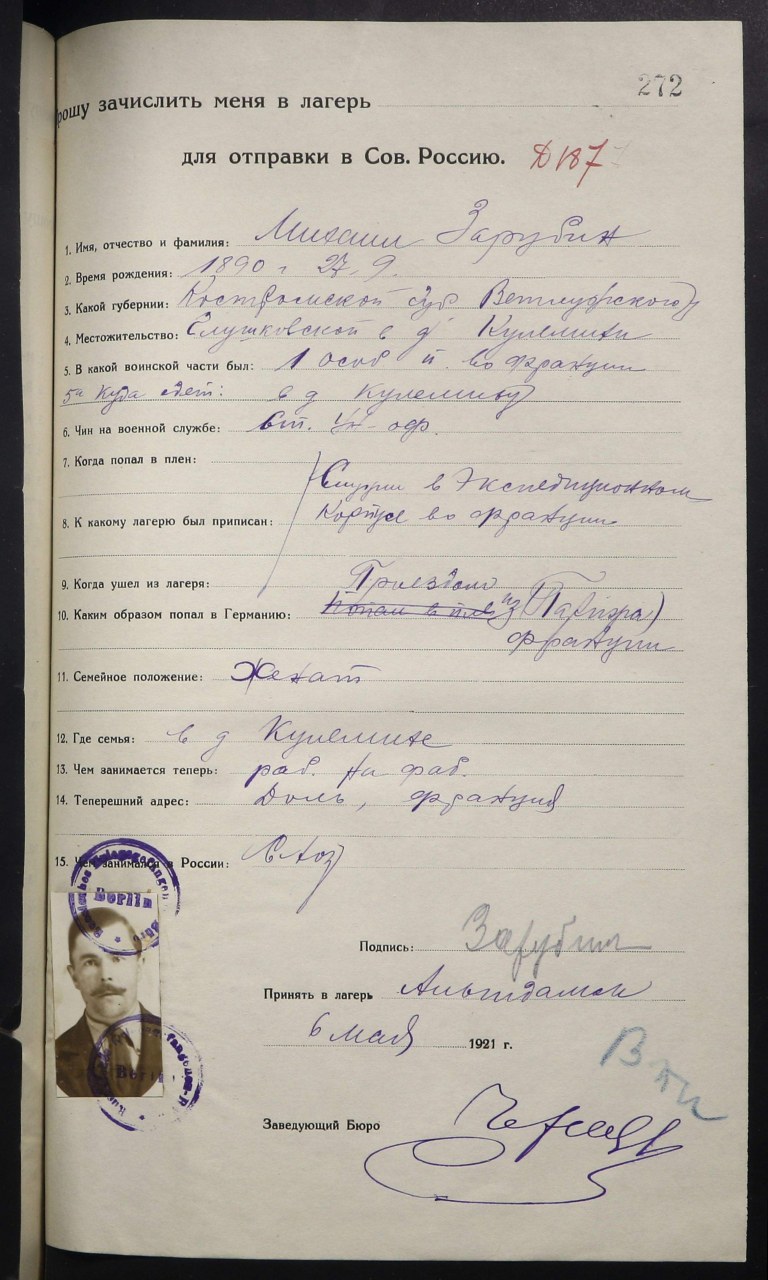 272
Прошу зачислить меня в лагерь
для отправки в Сов. Россию. Д187
1. Имя, отчество и фамилия: Михаил Зарубин
2. Время рождения: 1890 г 27. 9.
3. Какой губернии: Костромской губ Ветлужского у
4. Местожительство: Глушковской в д Кулемихи
5. В какой воинской части был: 1 особ п. во Франции
5а Куда едет: в д Кулемиху
6. Чин на военной службе: Ст. Ун-оф.
7. Когда попал в плен:
Служил в Экспедиционном
8. К какому лагерю был приписан: Корпусе во Франции
9. Когда ушел из лагеря: Проездом
10. Каким образом попал в Германию: Попал в плен из
Франции
11. Семейное положение: Женат
12. Где семья: в д Кулемихе
13. Чем занимается теперь: раб. на фаб.
14. Теперешний адрес: Доль, Франция
15. Чем занимался в России: С хоз
Berlin
Подпись: Зарубин
Принять в лагерь Альтдамм
6 мая 1921 г.
Berlin
Заведующий Бюро